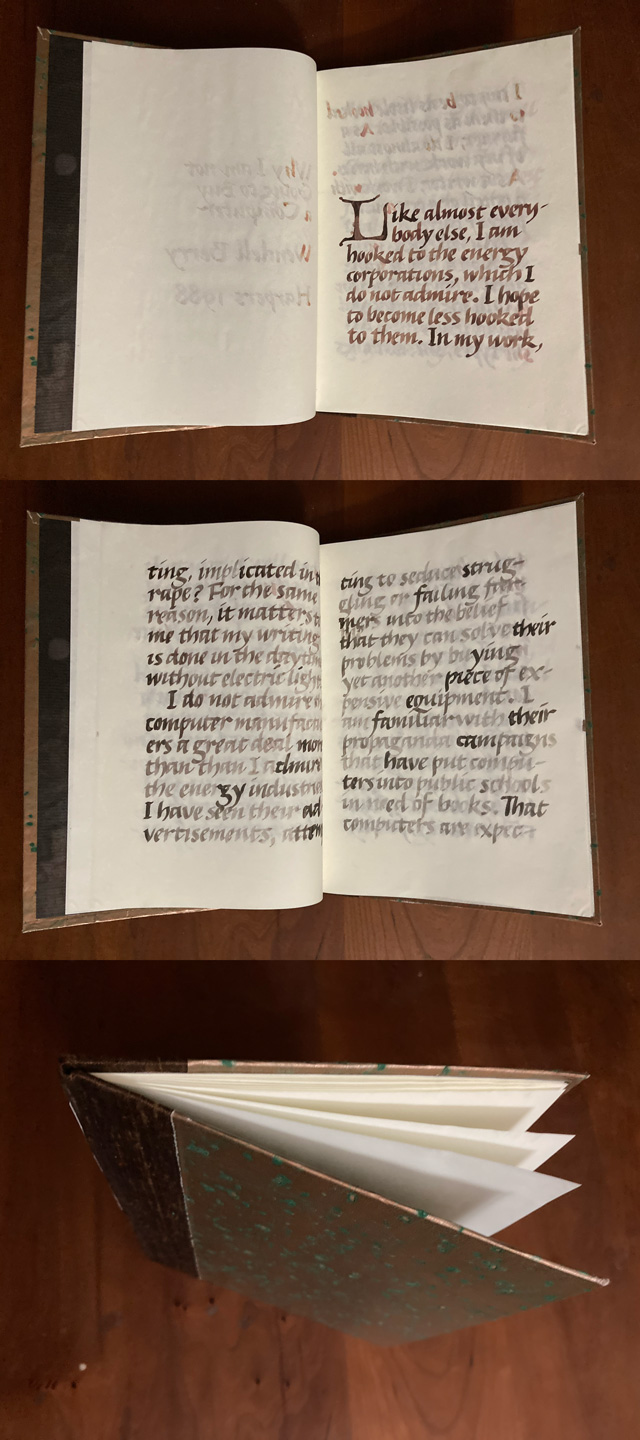 Why I am not
Going to Buy
a Computer
Wendell Berry
Harpers 1988
Like almost every-
body else, I am
hooked to the energy
corporations, which I
do not admire. I hope
to become less hooked
to them. In my work,
ting, implicated in
rape? For the same
reason, it matters to
me that my writing
is done in the daytime
without electric light
I do not admire
computer manufactur
ers a great deal more
than than I admire
the energy industries
I have seen their ad
vertisements, attem
ting to seduce strug-
gling or failing far-
mers into the belief
that they can solve their
problems by buying
yet another piece of ex-
pensive equipment. I
am familiar with their
propaganda campaigns
that have put compu-
ters into public schools
in need of books. That
computers are expec-